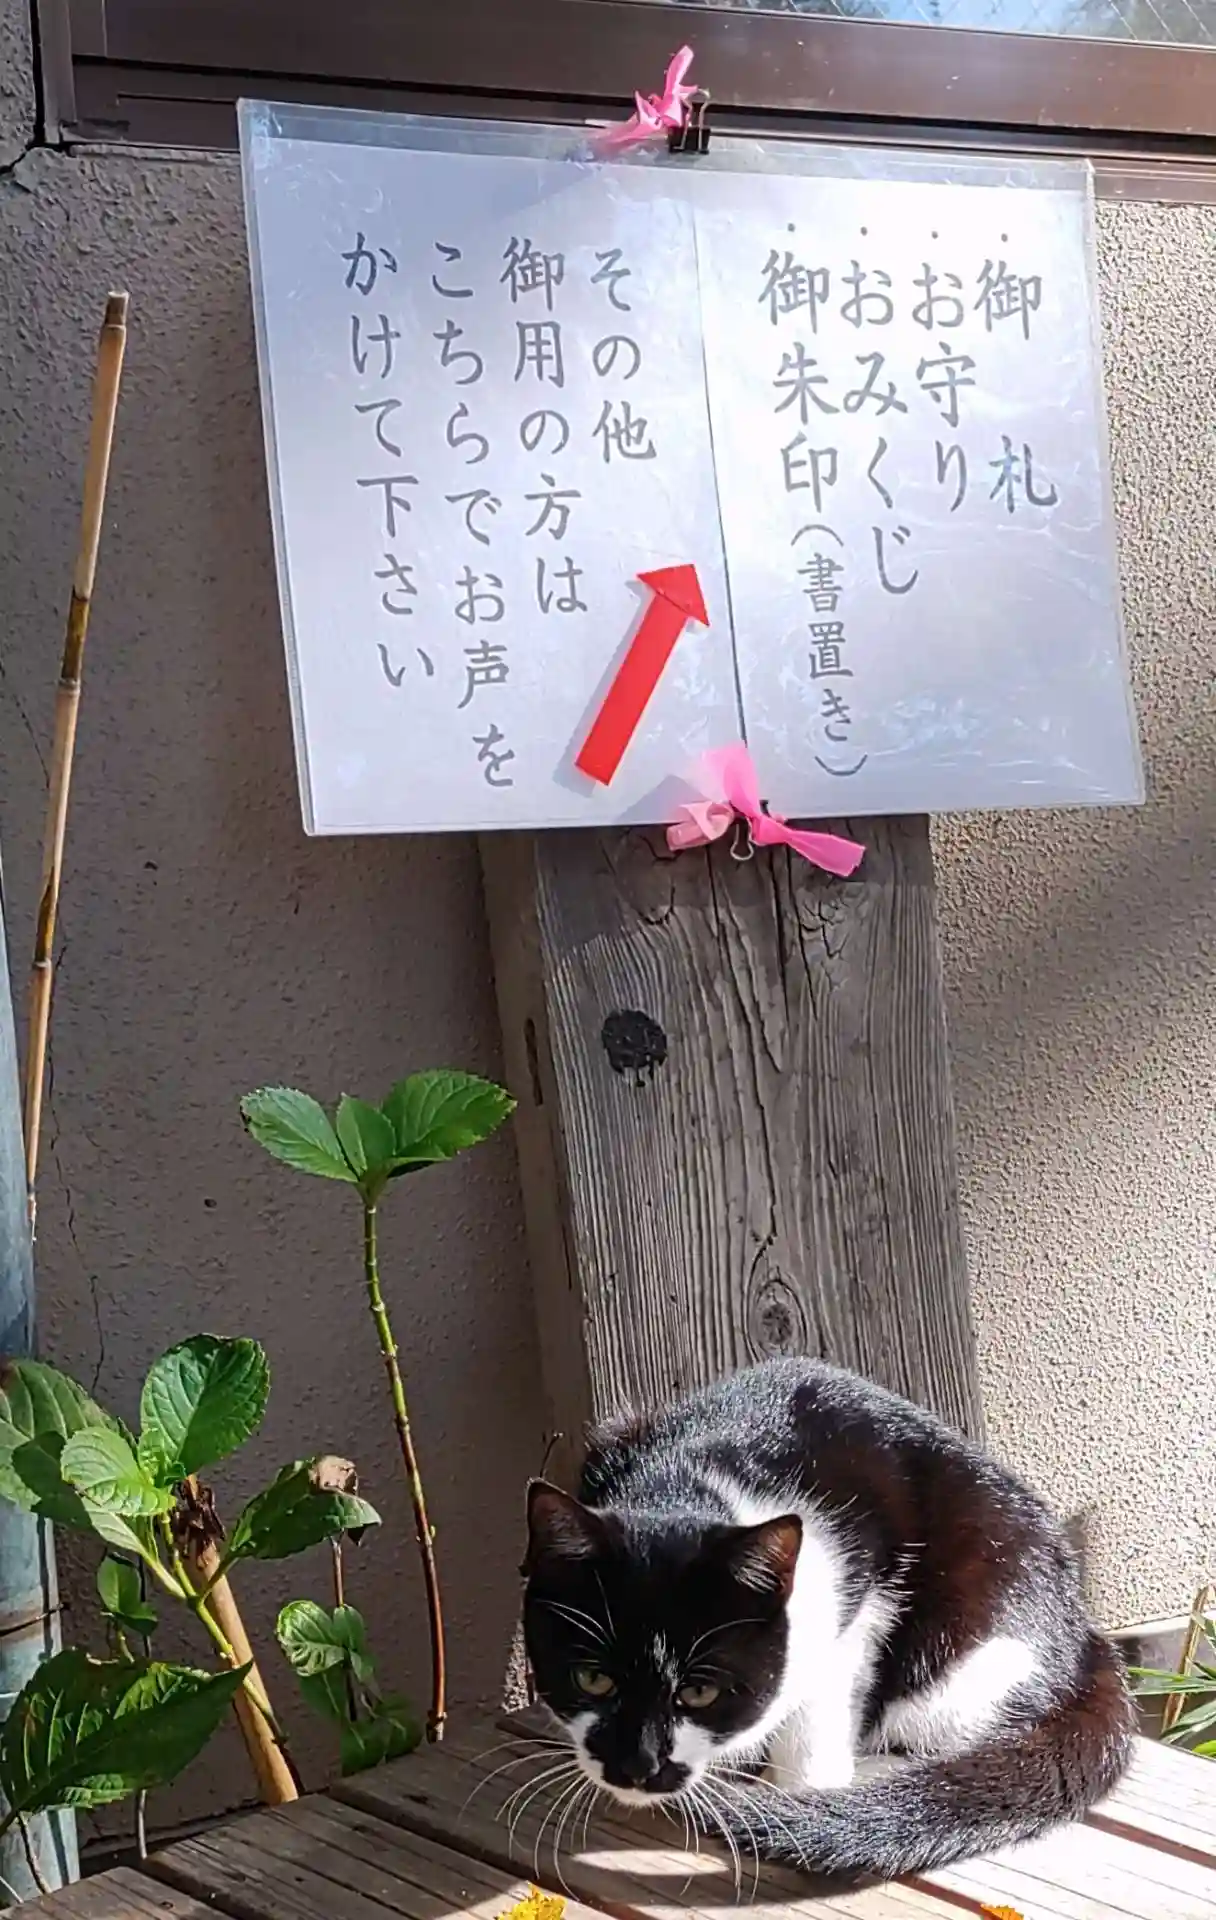 ・御札
・お守り
・おみくじ
・御朱印(書置き)
その他
御用の方は
こちらでお声を
かけて下さい